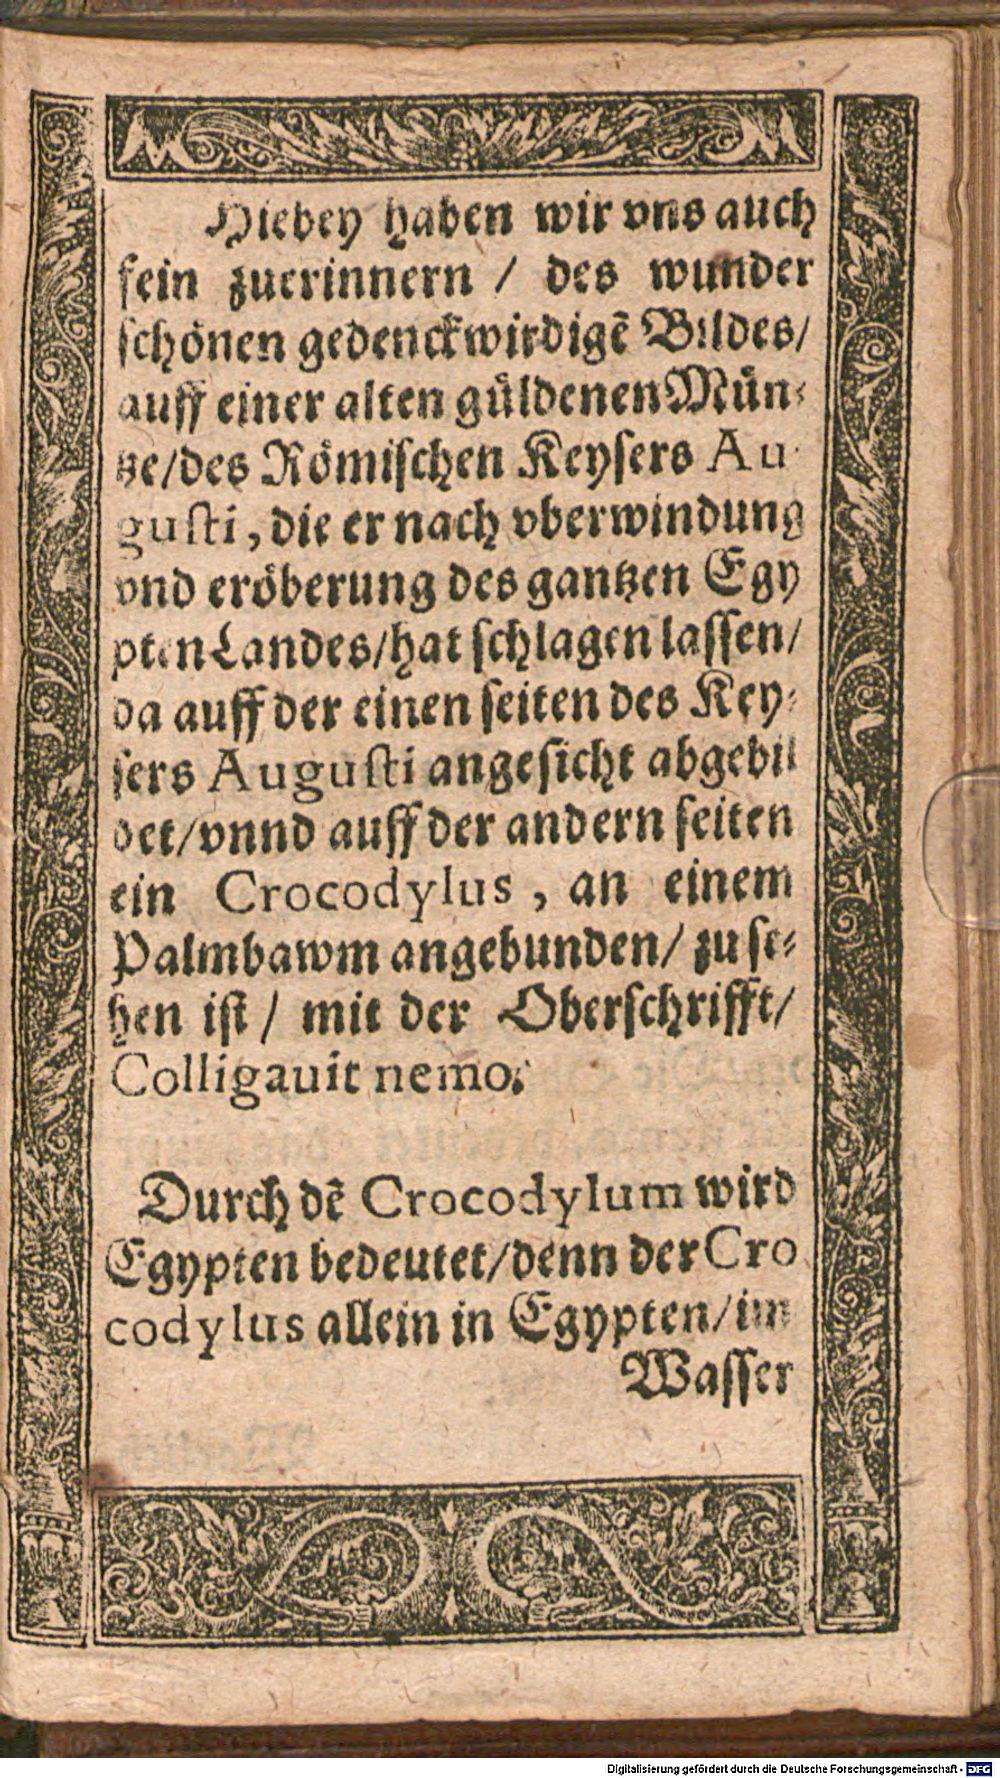 Hiebey haben wir vns auch
fein zuerinnern / des wunder
schönen gedenckwirdigē Bildes/
auff einer alten güldenen Mün-
tze/des Römischen Keysers Au-
gusti, die er nach vberwindung
vnd eröberung des gantzen Egy
pten Landes/hat schlagen lassen/
da auff der einen seiten des Key-
sers Augusti angesicht abgebil
det/vnnd auff der andern seiten
ein Crocodylus, an einem
Palmbawm angebunden/ zu se-
hen ist / mit der Oberschrifft/
Colligavit nemo.
Durch dē Crocodylum wird
Egypten bedeutet/denn der Cro
codylus allein in Egypten/im
Wasser
Digitalisierung gefördert durch die Deutsche Forschungsgemeinschaft - DFG